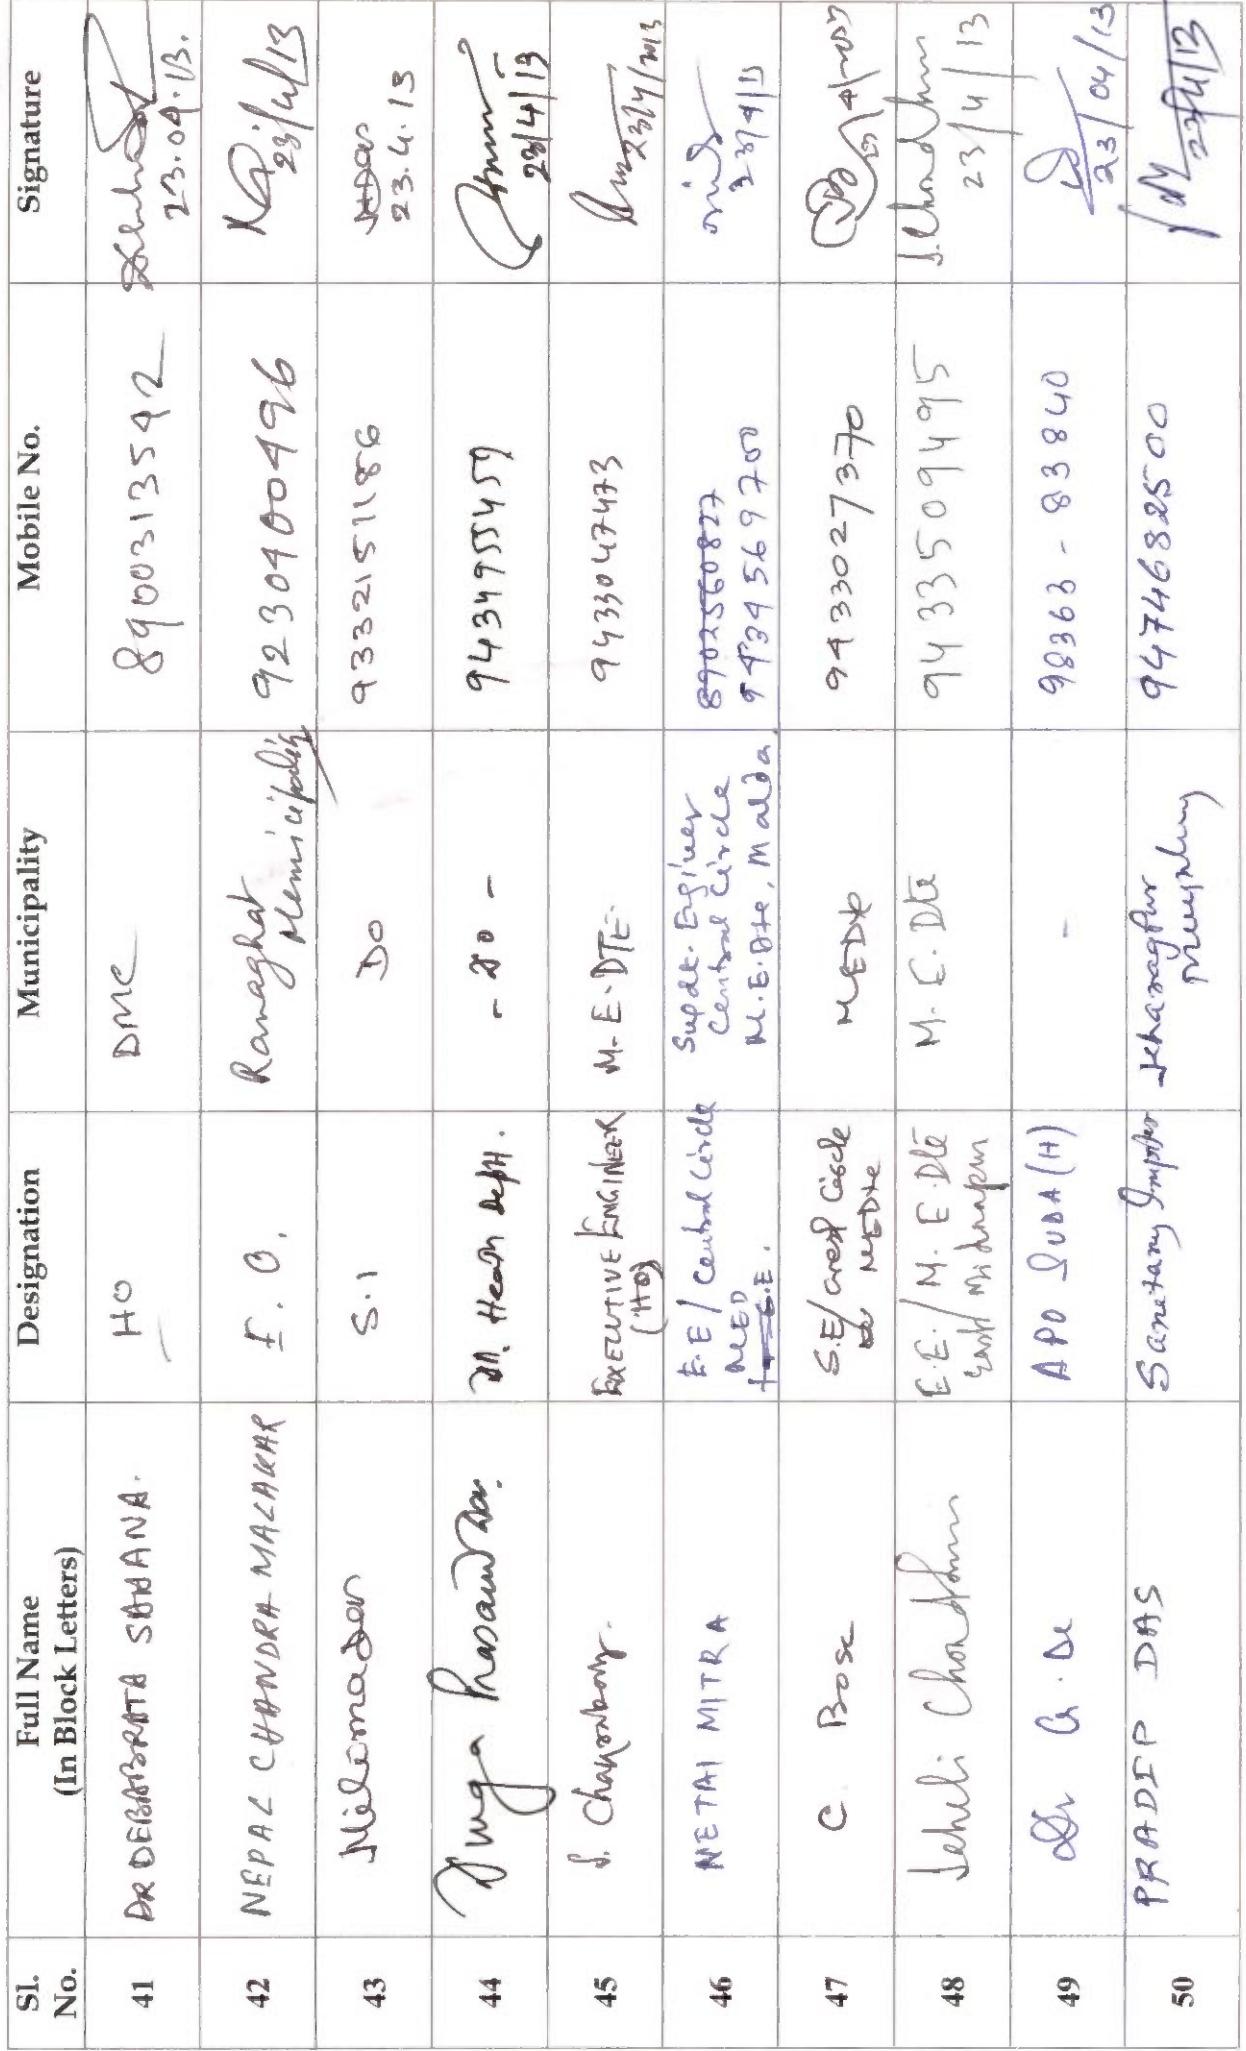 Sl. No. Full Name (In Block Letters) Designation Municipality Mobile No. Signature
41 DR DEBABRATA SAHANA. HO DMC 8900313542 23.04.13.
42 NEPAL CHANDRA MALAKAR F.O. Ranaghat Municipality 9230400496 23/4/13
43 S.I DO 9332151186 23.4.13
44 Durga Prasad Das. Health Deptt. - DO - 9434955459 23/4/13
45 S. Chakraborty. EXECUTIVE ENGINEER (HQ) M.E.DTE. 9433047473 23/4/2013
46 NETAI MITRA E.E/Central Circle MED S.E. Supdt. Engineer Central Circle M.E.Dte, Malda 8902560827 9434569700 23/4/13
47 C. Bose S.E/West Circle MEDte MEDte 9433027370
48 E.E./M.E.Dte M.E.Dte 9433509495 23/4/13
49 Dr G. De APO SUDA (H) - 98363-83840 23/04/13
50 PRADIP DAS Sanetary Inspter Municipality 9474682500 23/4/13